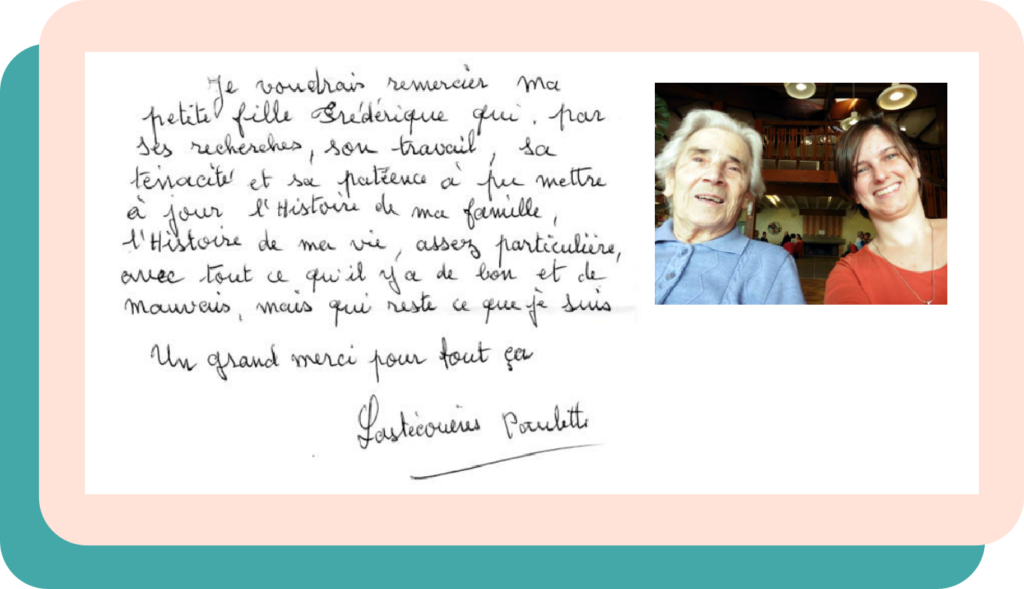 Je voudrais remercier ma
petite fille Frédérique qui, par
ses recherches, son travail, sa
ténacité et sa patience à pu mettre
à jour l'Histoire de ma famille,
l'Histoire de ma vie, assez particulière,
avec tout ce qu'il y a de bon et de
mauvais, mais qui reste ce que je suis
Un grand merci pour tout ça
Lastécouères Paulette